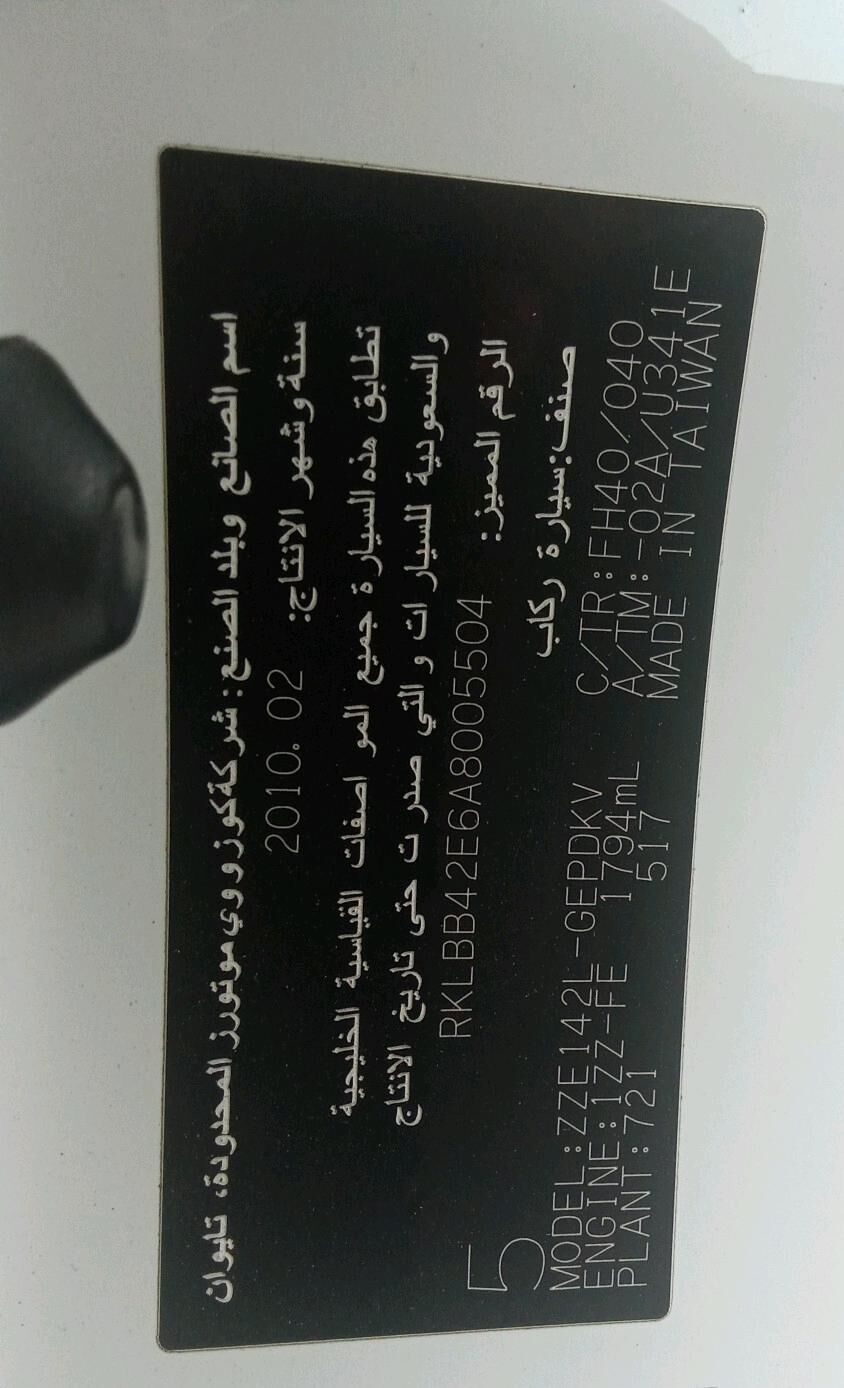 اسم الصانع وبلد الصنع: شركة كوزووي موتورز المحدودة، تايوان
سنة وشهر الانتاج: 2010. 02
تطابق هذه السيارة جميع المواصفات القياسية الخليجية
والسعودية للسيارات والتي صدرت حتى تاريخ الانتاج
الرقم المميز: RKLBB42E6A8005504
صنف: سيارة ركاب
5
MODEL:ZZE142L-GEPDKV C/TR:FH40/040
ENGINE:1ZZ-FE 1794mL A/TM:-02A/U341E
PLANT:721 517 MADE IN TAIWAN